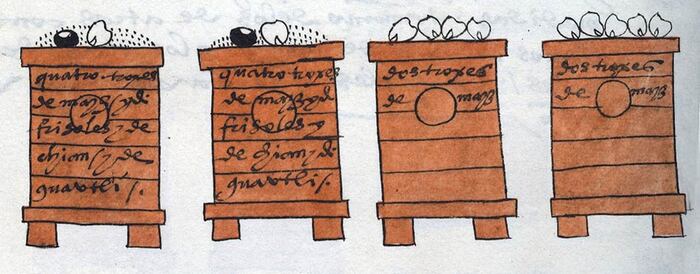 quatro troxes
de mayz y de
frisoles y de
chian y de
guautli
quatro troxes
de mayz y de
frisoles y
de chian y de
guautli
dos troxes
de mayz
dos troxes
de mayz